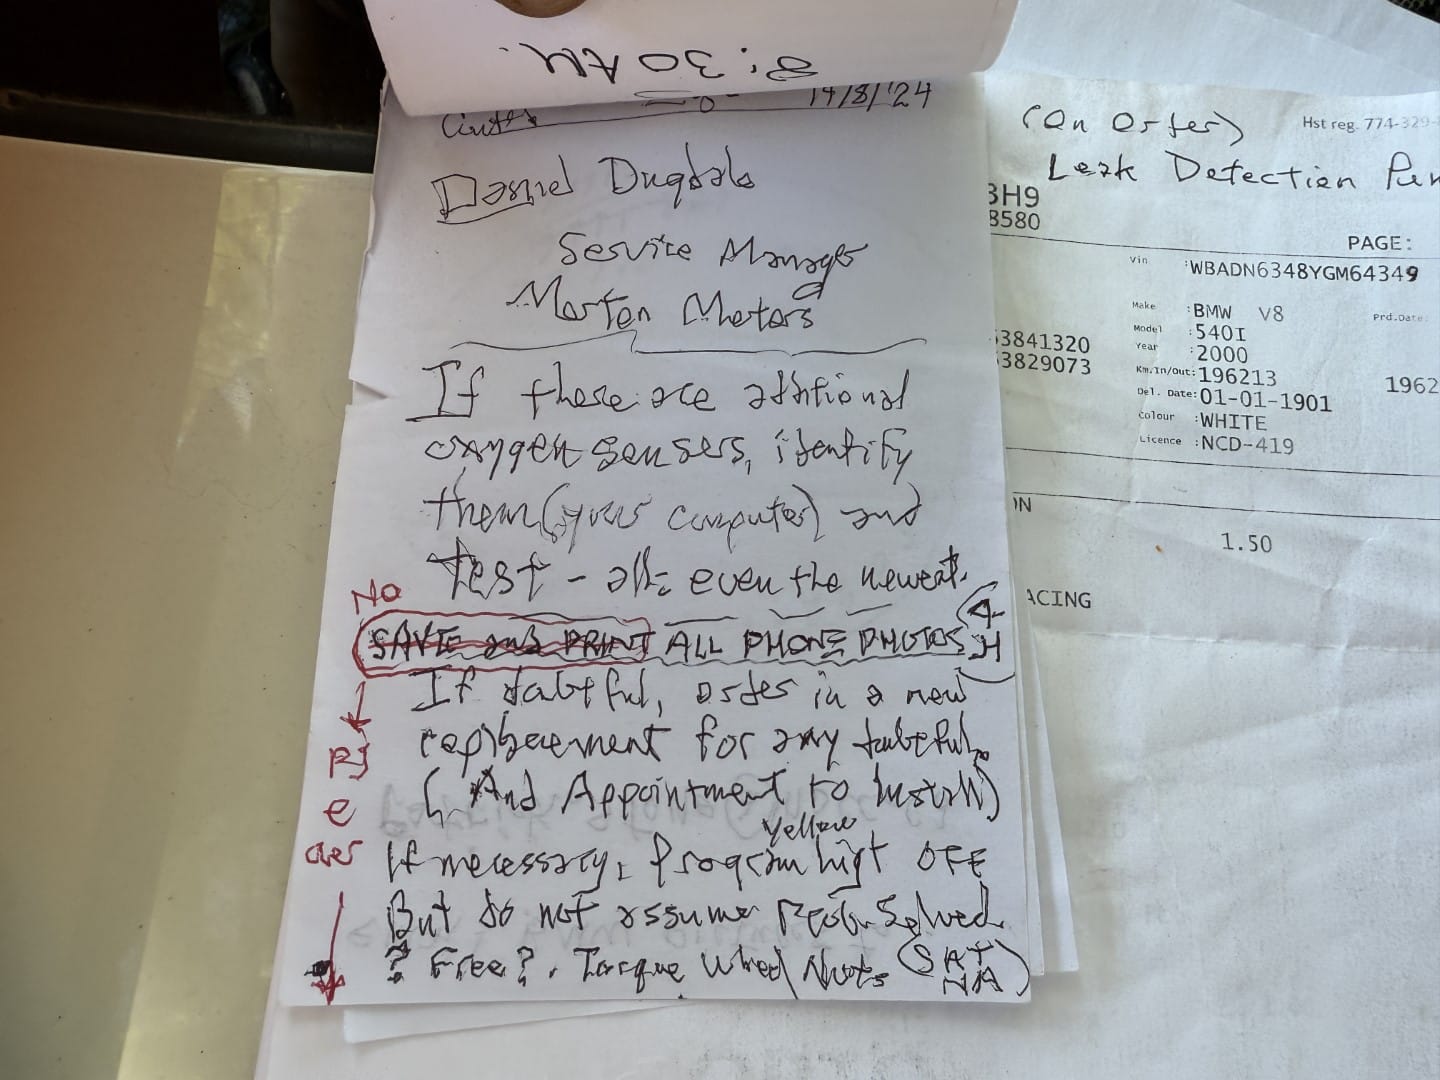 8:30 AM.
14/8/'24
Daniel Dugdale
Service Manager
Morten Motors
If there are additional
oxygen sensors, identify
them (your computer) and
test - all: even the newest.
No
SAVE and PRINT ALL PHONE PHOTOS
If doubtful, order in a new
replacement for any doubtful.
(And Appointment to Install)
yellow
If necessary, Program light OFF
But do not assume Prob. Solved.
? Free? . Torque Wheel Nuts (SAT
NA)
(On Order)
Hst reg. 774-329-
Leak Detection
BH9
8580
PAGE:
Vin :WBADN6348YGM64349
Make :BMW V8
Prd.Date:
Model :540I
53841320
Year :2000
53829073
Km.In/Out: 196213
1962
Del. Date: 01-01-1901
Colour :WHITE
Licence :NCD-419
ON
1.50
ACING